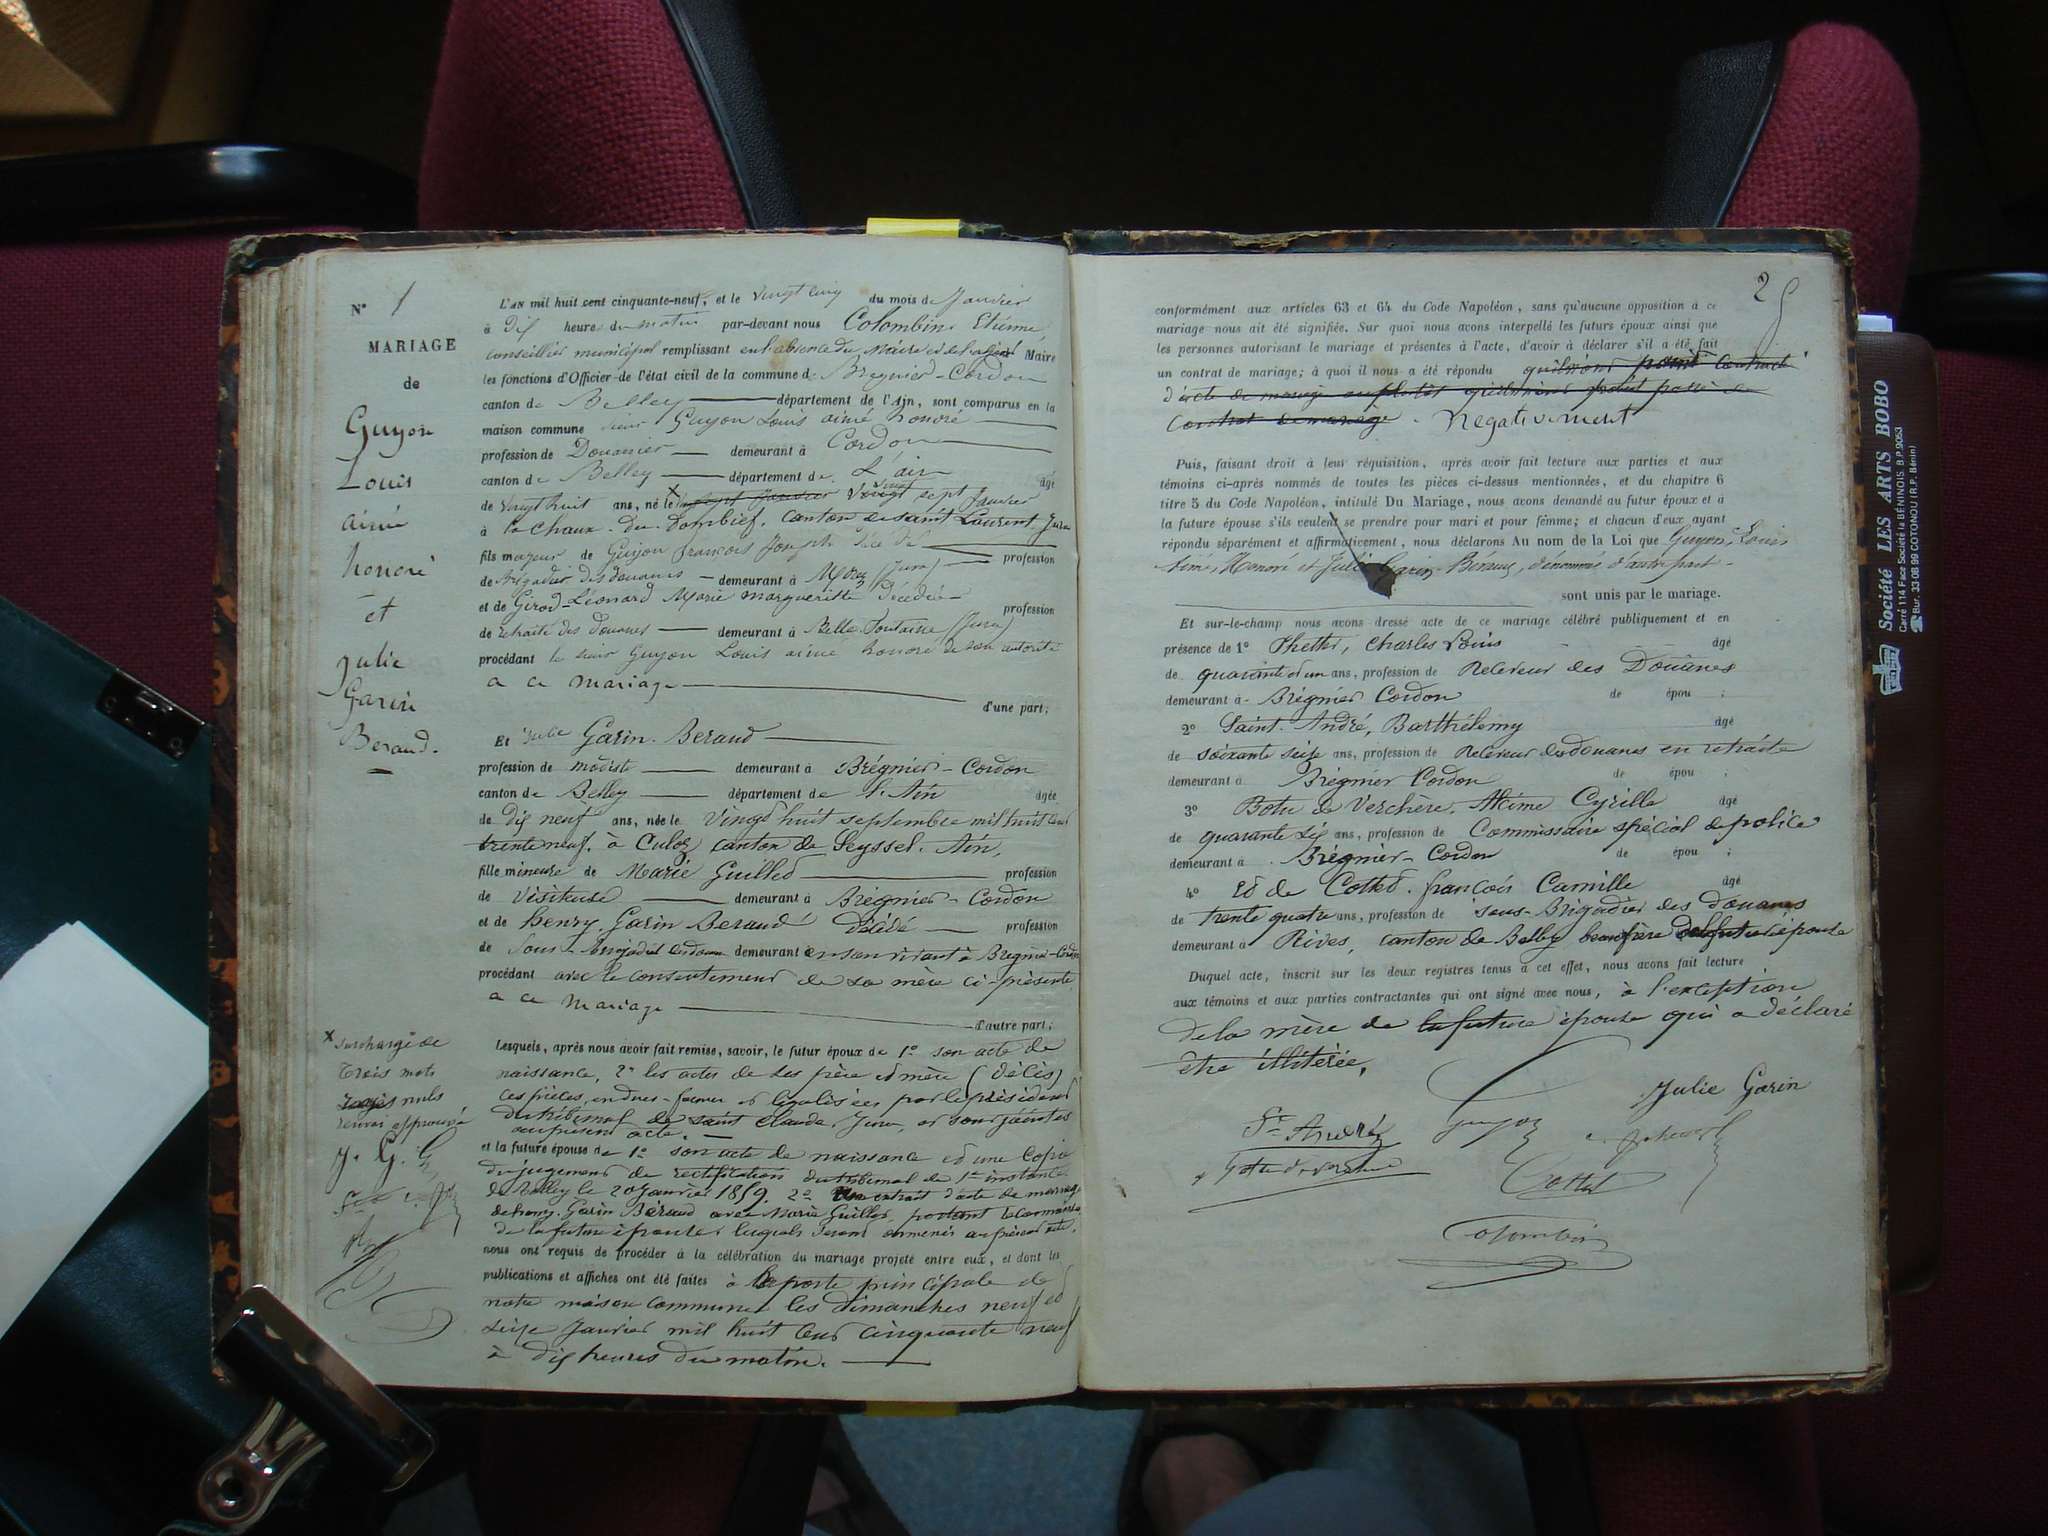 N° 1
MARIAGE
de
Guyon
Louis
aimé
honoré
et
Julie
Garin
Beraud.
L'AN mil huit cent cinquante-neuf, et le vingt cinq du mois de Janvier
à dix heures du matin par-devant nous Colombin Etienne
conseiller municipal remplissant en l'absence du Maire et de l'adjoint Maire
les fonctions d'Officier de l'état civil de la commune de Bregnier-Cordon
canton de Belley département de l'Ain, sont comparus en la
maison commune sieur Guyon Louis aimé honoré
profession de Douanier demeurant à Cordon
canton de Belley département de L'ain âgé
de vingt huit ans, né le sept Janvier vingt sept Janvier
à la Chaux-du-Dombief, canton de saint Laurent, Jura
fils majeur de Guyon françois Joseph décédé profession
de brigadier des douanes demeurant à Morez (Jura)
et de Girod-Léonard Marie margueritte décédée profession
de retraité des douanes demeurant à Belle fontaine (Jura)
procédant le sieur Guyon Louis aimé honoré de son autorité
a ce mariage
d'une part;
Et Julie Garin-Beraud
profession de modiste demeurant à Brégnier-Cordon
canton de Belley département de l'Ain âgée
de dix neuf ans, née le vingt huit septembre mil huit cent
trente neuf, à Culoz canton de Seyssel, Ain,
fille mineure de Marie Guillet profession
de visiteuse demeurant à Brégnier-Cordon
et de henry Garin Beraud décédé profession
de Sous-brigadier des douanes demeurant en son vivant à Brégnier-Cordon
procédant avec le consentement de sa mère ci-présente
a ce mariage
d'autre part;
x surchargé de
trois mots
rayés nuls
renvoi approuvé
J. G.
Lesquels, après nous avoir fait remise, savoir, le futur époux de 1° son acte de
naissance, 2° les actes de ses père et mère (décès)
ces pièces, en dues-formes et légalisées par le président
du tribunal de saint Claude, Jura, et sont jointes
au présent acte.
et la future épouse de 1° son acte de naissance et une copie
du jugement de rectification du tribunal de 1re instance
de Belley le 20 Janvier 1859. 2° Un extrait d'acte de mariage
de henry Garin Béraud avec Marie Guillet, portant
de la future épouse, lesquels seront annexés au présent acte,
nous ont requis de procéder à la célébration du mariage projeté entre eux, et dont les
publications et affiches ont été faites à la porte principale de
notre maison commune les dimanches neuf et
seize Janvier mil huit cent cinquante neuf
à dix heures du matin.
25
conformément aux articles 63 et 64 du Code Napoléon, sans qu'aucune opposition à ce
mariage nous ait été signifiée. Sur quoi nous avons interpellé les futurs époux ainsi que
les personnes autorisant le mariage et présentes à l'acte, d'avoir à déclarer s'il a été fait
un contrat de mariage; à quoi il nous a été répondu qu'ils n'ont point contracté
d'acte de mariage
contrat de mariage. Négativement
Puis, faisant droit à leur réquisition, après avoir fait lecture aux parties et aux
témoins ci-après nommés de toutes les pièces ci-dessus mentionnées, et du chapitre 6
titre 5 du Code Napoléon, intitulé Du Mariage, nous avons demandé au futur époux et à
la future épouse s'ils veulent se prendre pour mari et pour femme; et chacun d'eux ayant
répondu séparément et affirmativement, nous déclarons Au nom de la Loi que Guyon, Louis
Aimé, Honoré et Julie Garin-Béraud, dénommés d'autre part
sont unis par le mariage.
Et sur-le-champ nous avons dressé acte de ce mariage célébré publiquement et en
présence de 1° Charles Louis âgé
de quarante et un ans, profession de Receveur des Douanes
demeurant à Brégnier Cordon de épou ;
2° Saint-André, Barthélemy âgé
de soixante seize ans, profession de Receveur des douanes en retraite
demeurant à Brégnier Cordon de épou ;
3° Botu de Verchère, Alcime Cyrille âgé
de quarante six ans, profession de Commissaire spécial de police
demeurant à Brégnier-Cordon de épou ;
4° Et de Cottet françois Camille âgé
de trente quatre ans, profession de sous-Brigadier des douanes
demeurant à Rives, canton de Belley beau frère de la future épouse
Duquel acte, inscrit sur les deux registres tenus à cet effet, nous avons fait lecture
aux témoins et aux parties contractantes qui ont signé avec nous, à l'exception
de la mère de la future épouse qui a déclaré
être illitérée,
Julie Garin
St André
Guyon
Cottet
Colombin
Société LES ARTS BOBO
Carré 114 Face Société la BÉNINOIS B.P. 9053
Bur. 33-08-99 COTONOU (R.P. Bénin)